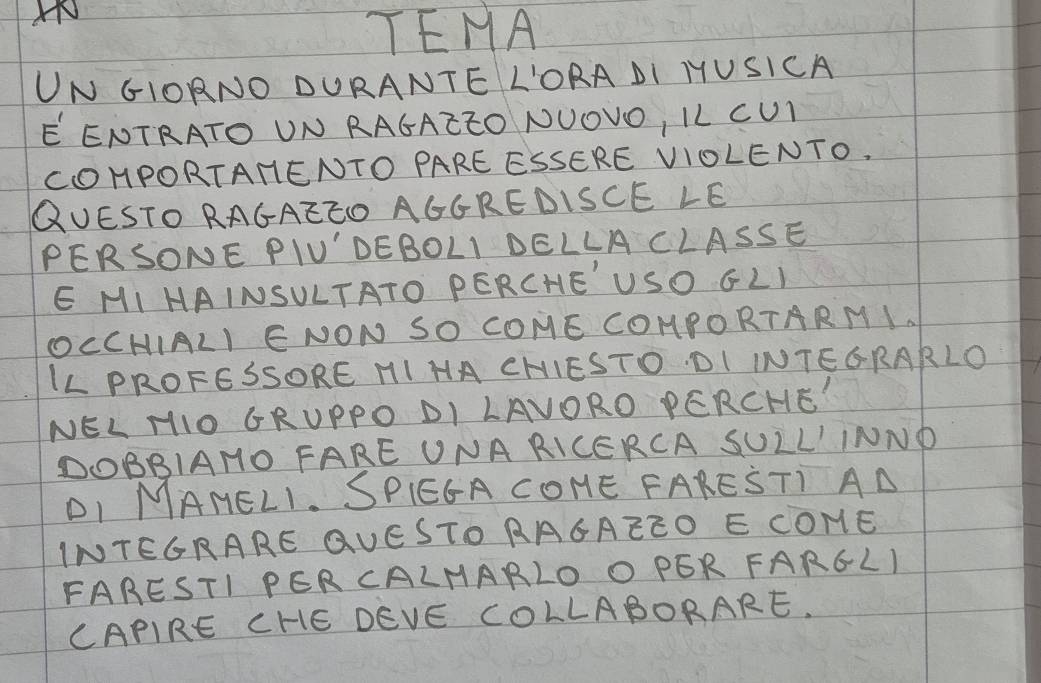 TEMA
UN GIORNO DURANTE L'ORA DI MUSICA
E' ENTRATO UN RAGAZZO NUOVO, IL CUI
COMPORTAMENTO PARE ESSERE VIOLENTO.
QUESTO RAGAZZO AGGREDISCE LE
PERSONE PIU' DEBOLI DELLA CLASSE
E MI HA INSULTATO PERCHE' USO GLI
OCCHIALI E NON SO COME COMPORTARMI.
IL PROFESSORE MI HA CHIESTO DI INTEGRARLO
NEL MIO GRUPPO DI LAVORO PERCHE'
DOBBIAMO FARE UNA RICERCA SULL'INNO
DI MAMELI. SPIEGA COME FARESTI AD
INTEGRARE QUESTO RAGAZZO E COME
FARESTI PER CALMARLO O PER FARGLI
CAPIRE CHE DEVE COLLABORARE.